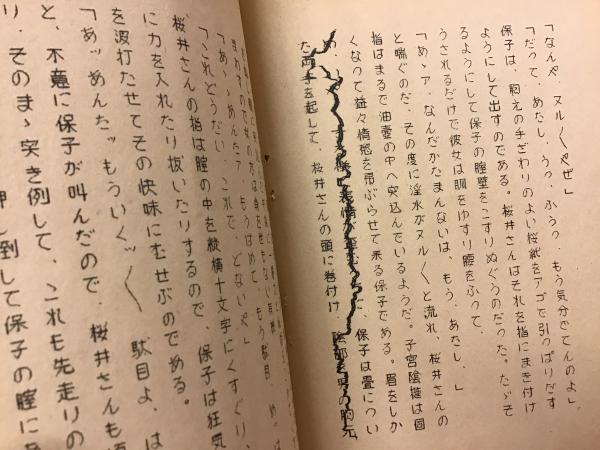 「なんや、ヌル〳〵やぜ」
「だって、あたし、うっ、ふうっ、もう気分でてんのよ」
保子は、枕元の手ざわりのよい桜紙をアゴで引っぱりだす
ようにして出すのである。桜井さんはそれを指にまき付け
るようにして保子の膣壁をこすりぬぐうのだった。たゞそ
うされるだけで彼女は胴をゆすり腰をふって、
「あゝア、なんだかたまんないは、もう、あたし、」
と喘ぐのだ。その度に淫水がヌル〳〵と流れ、桜井さんの
指はまるで油壷の中へ突込んでいるようだ。子宮陰挺は固
くなって益々情慾を昂ぶらせて来る保子である。眉をしか
め、 表情が歪む 、保子は畳につい
た両手を起して、桜井さんの頭に巻付け、陰部を男の胸元
「あゝあんたァ、もうはめて、もう駄目、
「これどうだい、これで、どないや」
桜井さんの指は膣の中を縦横十文字にくすぐり、
に力を入れたり抜いたりするので、保子は狂気
を波打たせてその快味にむせぶのである。
「あッあんたッもういくッ〳〵 駄目よ、は
と、不意に保子が叫んだので、桜井さんも
り、そのまゝ突き倒して、これも先走りの
押し倒して保子の膣に